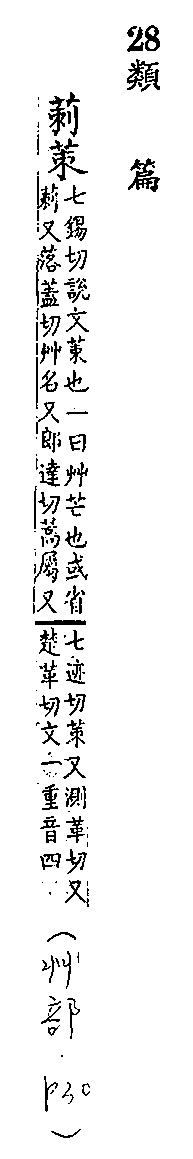 28類　篇
莿茦
七錫切說文茦也一曰艸芒也或省
莿又落蓋切艸名又郎達切蒿屬又
七迹切茦又測革切又
楚革切文二重音四
(艸部．P30)